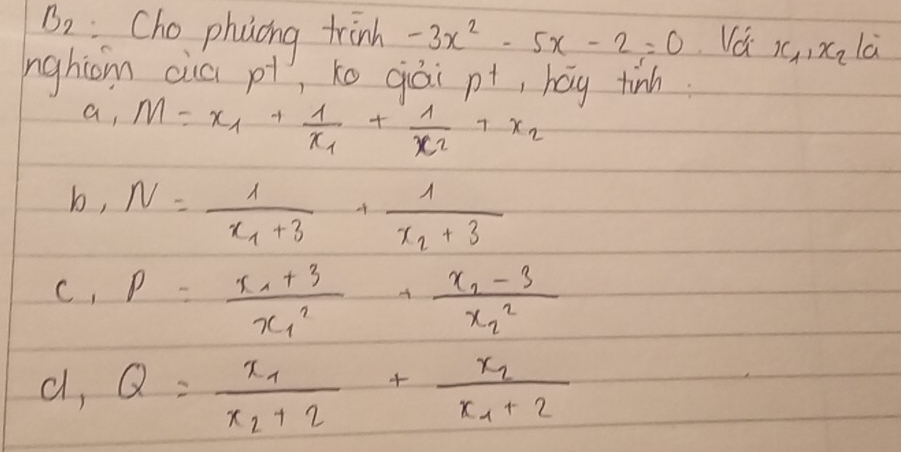 B2: Cho phương trình -3x² - 5x - 2 = 0. Với x₁, x₂ là
nghiệm của pt, ko giải pt, hãy tính:
a, M = x₁ + 1/x₁ + 1/x₂ + x₂
b, N = 1/(x₁ + 3) + 1/(x₂ + 3)
c, P = (x₁ + 3)/x₁² + (x₂ - 3)/x₂²
d, Q = x₁/(x₂ + 2) + x₂/(x₁ + 2)